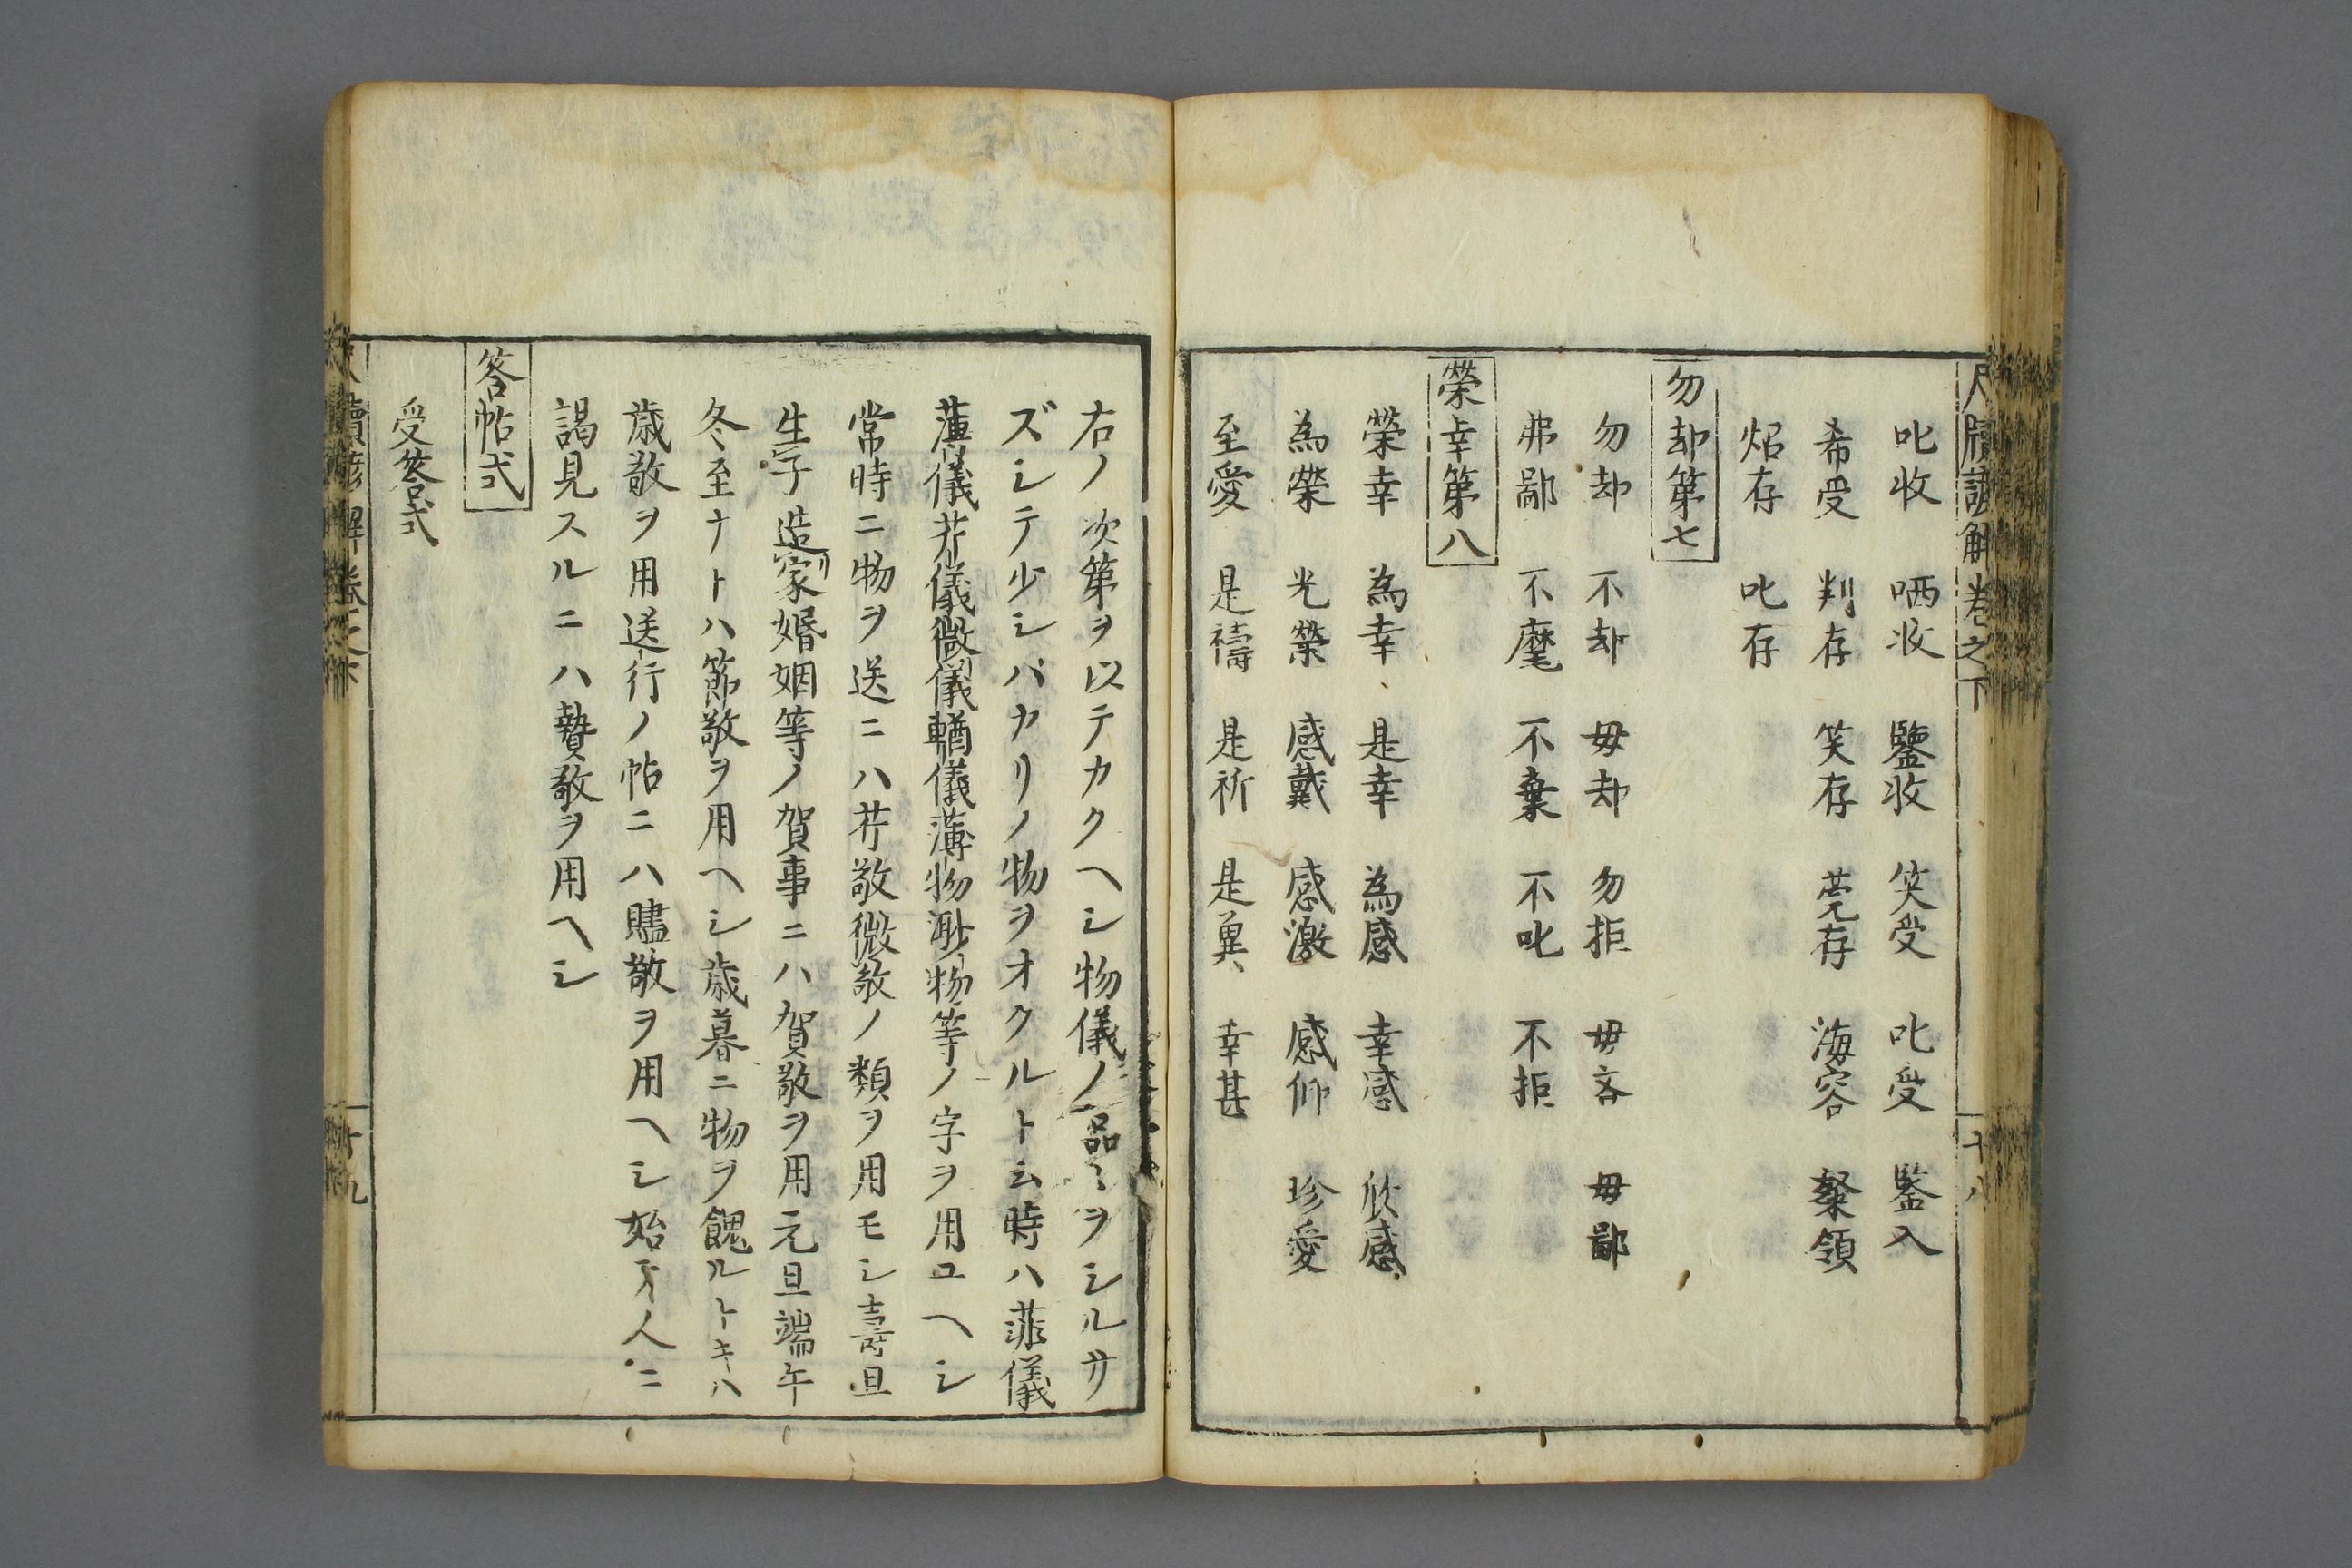 尺牘諺解卷之下 十八
叱收 哂收 鑒收 笑受 叱受 鑒入
希受 判存 笑存 莞存 海容 粲領
炤存 叱存
勿却第七
勿却 不却 毋却 勿拒 毋吝 毋鄙
弗鄙 不麾 不棄 不叱 不拒
榮幸第八
榮幸 為幸 是幸 為感 幸感 欣感
為榮 光榮 感戴 感激 感仰 珍愛
至愛 是禱 是祈 是兾 幸甚
右ノ次第ヲ以テカクヘシ物儀ノ品〻ヲシルサ
ズシテ少シバカリノ物ヲオクルト云時ハ菲儀
薄儀芹儀微儀輶儀薄物渺物等ノ字ヲ用ユヘシ
常時ニ物ヲ送ニハ芹敬微敬ノ類ヲ用モシ壽旦
生子造家婚姻等ノ賀事ニハ賀敬ヲ用元旦端午
冬至ナトハ節敬ヲ用ヘシ歳暮ニ物ヲ餽ルトキハ
歳敬ヲ用送行ノ帖ニハ贐敬ヲ用ヘシ始テ人ニ
謁見スルニハ贄敬ヲ用ヘシ
答帖式
受答式
尺牘諺解卷之下 十九